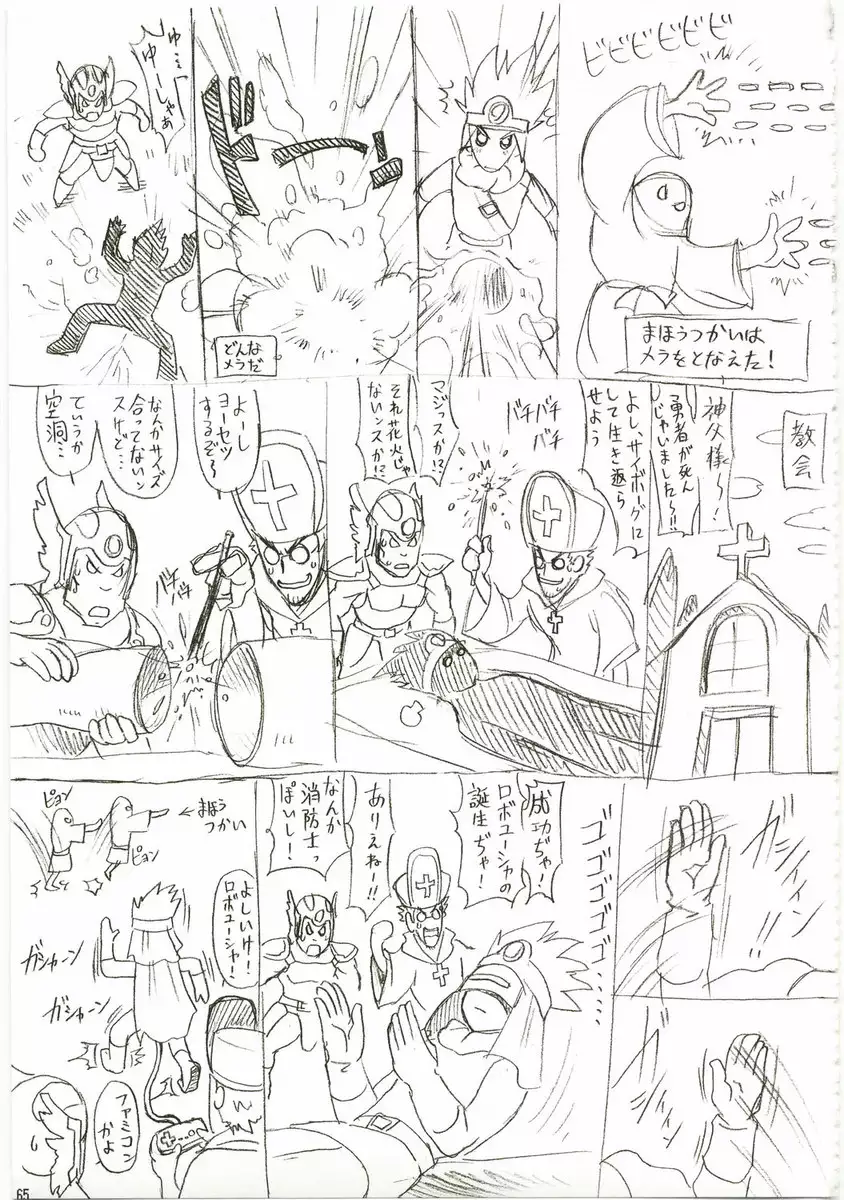 ビビビビビビ
まほうつかいは
メラをとなえた！
ドーン
どんな
メラだ
ゆ…
ゆーしゃぁ
教会
神父様～！
勇者が死ん
じゃいました～!!
よし、サイボーグに
して生き返ら
せよう
バチバチ
バチ
マジっスか!?
それ花火じゃ
ないンスか!?
よーし
ヨーセツ
するぞ～
バチバチ
なんかサイズ
合ってないン
スけど…
ていうか
空洞…
ゴゴゴゴゴ……
成功ぢゃ！
ロボユーシャの
誕生ぢゃ！
ありえねー!!
なんか
消防士っ
ぽいし！
ピョン
ピョン
←まほう
つかい
よしいけ！
ロボユーシャ！
ガシャーン
ガシャーン
ファミコン
かよ
65